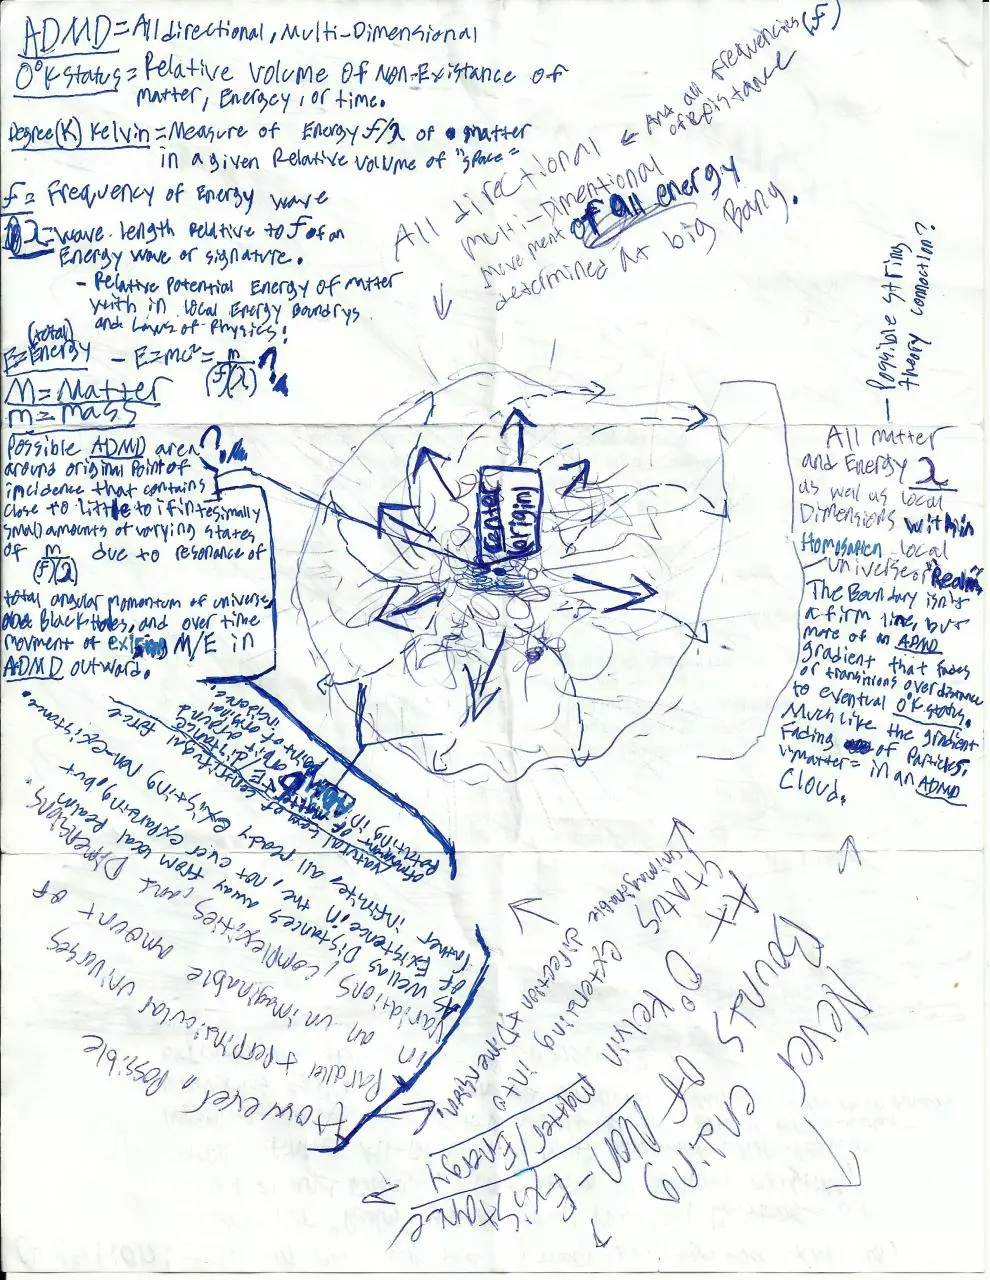 ADMD = All directional, Multi-Dimensional
0°K status = Relative Volume Of Non-Existance of
matter, Energy, or time.
Degree (K) Kelvin = Measure of Energy f/λ of matter
in a given Relative Volume of "space"
f = Frequency of Energy wave
λ = wave length Relative to f of an
Energy wave or signature.
- Relative Potential Energy of matter
with in local Energy Boundrys
and Laws of Physics!
(total)
E = Energy - E=mc² = m/(f)(λ) ?
M = Matter
m = mass
Possible ADMD area ?
around original Point of
incidence that contains
close to little to ifintesimally
small amounts of varying states
of m/(f)(λ) due to resonance of
total angular momentum of universe
Black holes, and over time
movment of existing M/E in
ADMD outward.
All directional ← And all frequencies (f)
of Existance
multi-Dimentional
movement of all energy
determined At big Bang.
Center
(origin)
- Possible string
theory connection?
All matter
and Energy λ
as well as local
Dimensions within
local
universe or "Realm"
The Boundary isn't
a firm line, but
more of an ADMD
gradient that fades
or transinions over distance
to eventual 0°K status.
Much like the gradient
Fading of Particles,
in an ADMD
Cloud.
However a Possible
Parallel + Perpinsicular universes
in an unimaginable amount of
Variations, complexities, and Dimensions
As well as Distances away from local Realm
of Existence in the, not ever expanding, but
rather infinite, all ready existing nonexistance.
Never ending
Bounds of Non-Existance
At 0° Kelvin Matter/Energy
Starts extending into
unimaginable direction + Dimension.